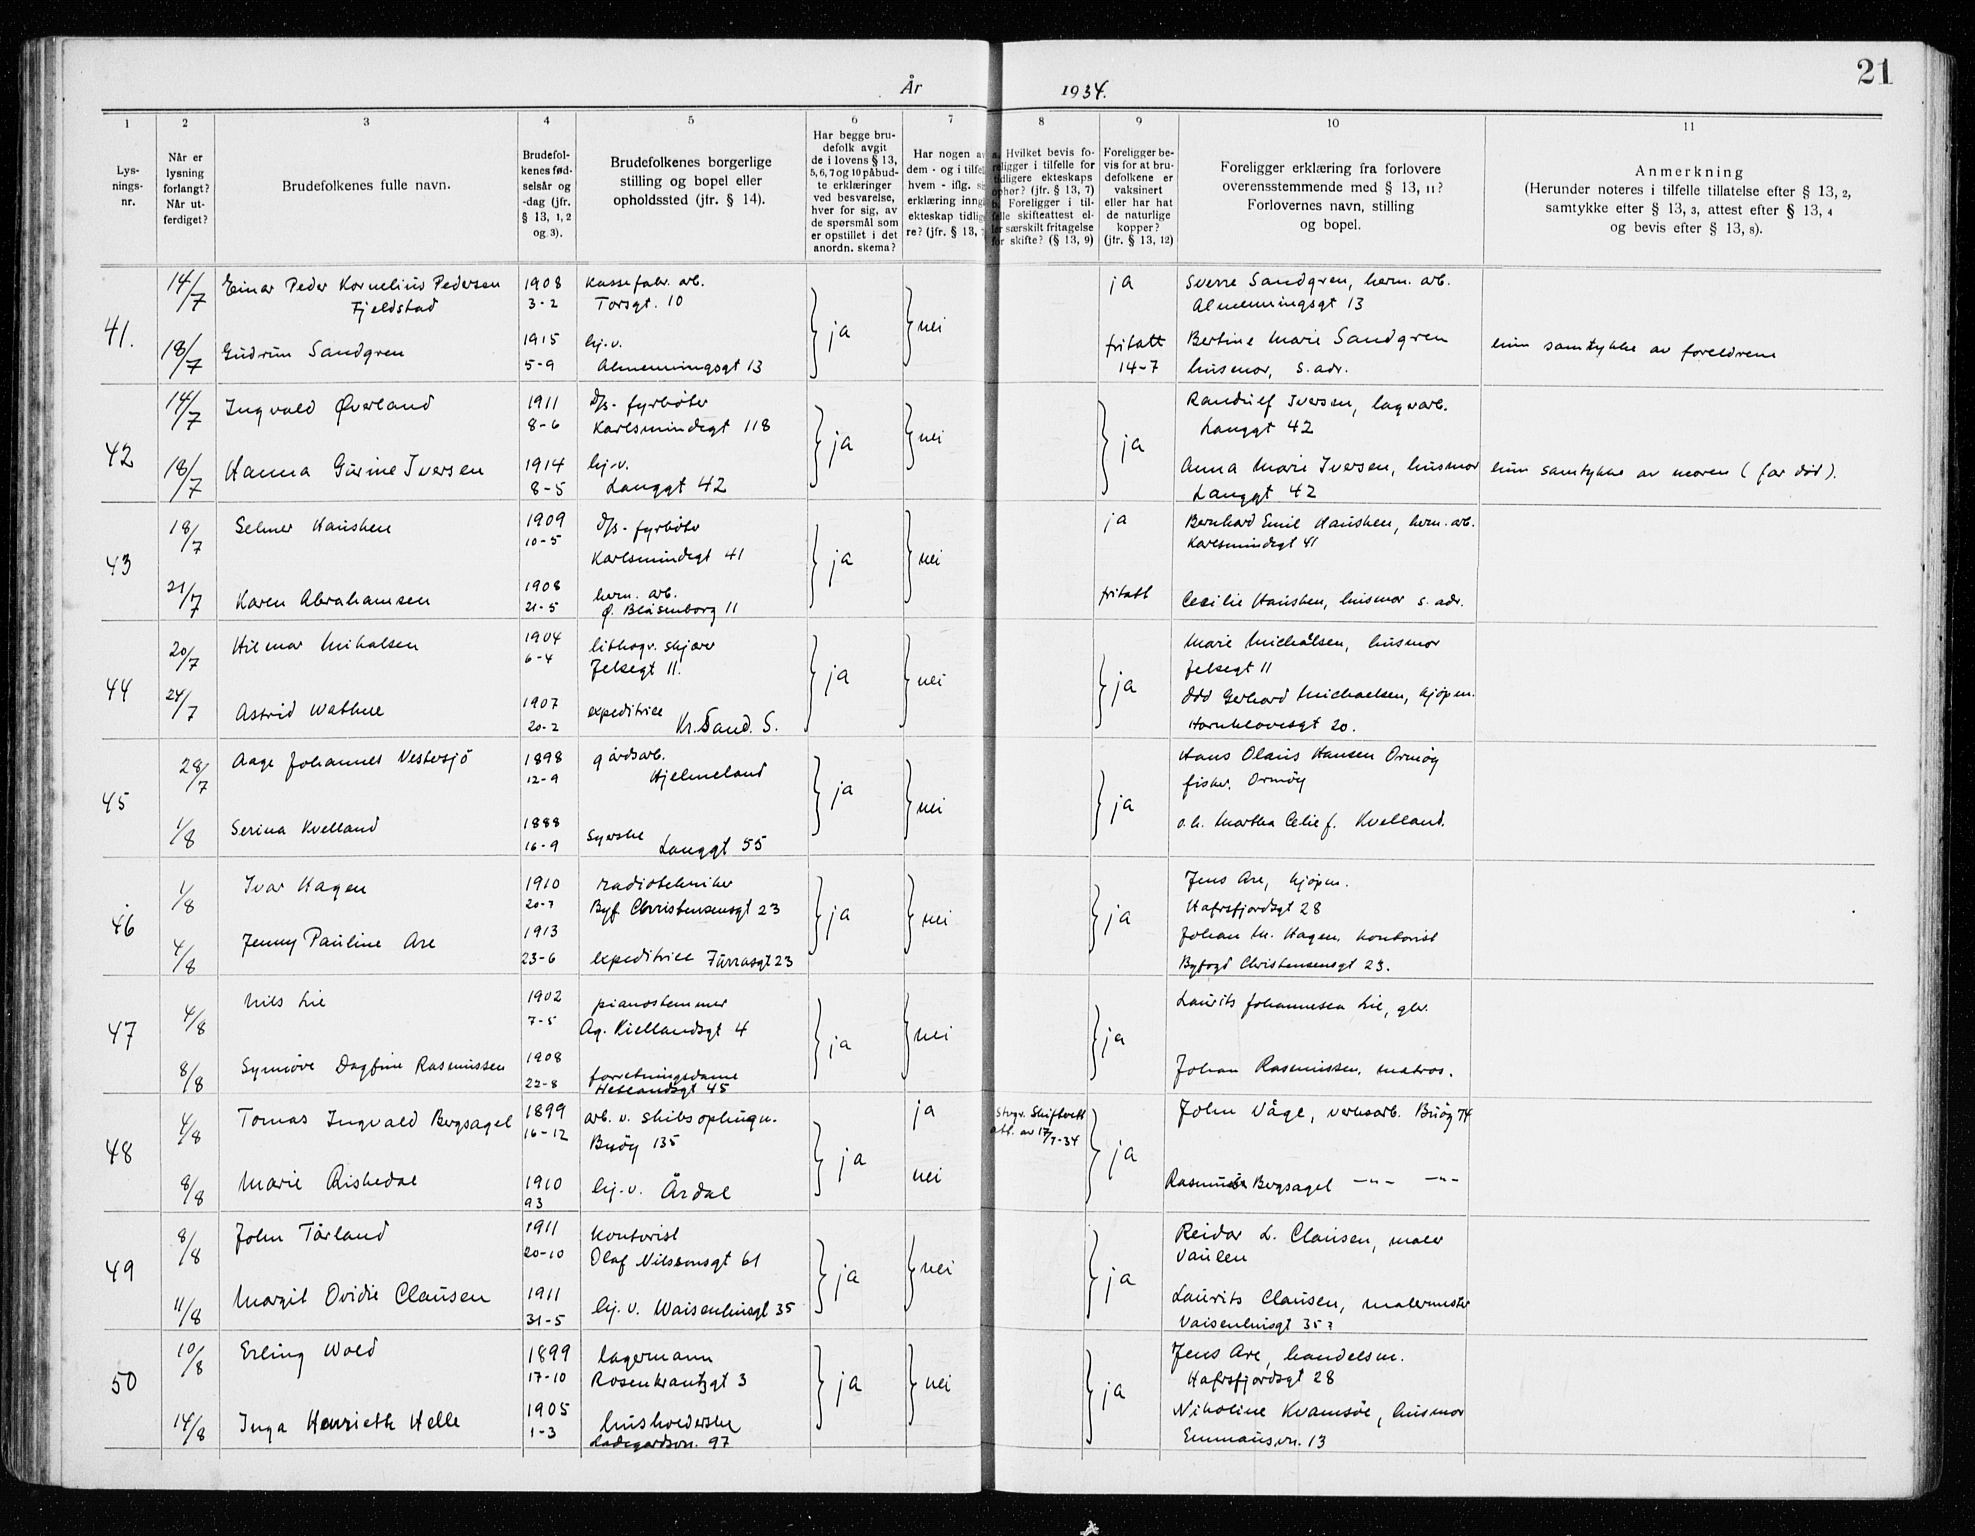 21
År 1934.
1 2 3 4 5 6 7 8 9 10 11
Lys-
nings-
nr.
Når er
lysning
forlangt?
Når ut-
ferdiget?
Brudefolkenes fulle navn.
Brudefol-
kenes fød-
selsår og
-dag (jfr.
§ 13, 1, 2
og 3).
Brudefolkenes borgerlige
stilling og bopel eller
opholdssted (jfr. § 14).
Har begge bru-
defolk avgit
de i lovens § 13,
5, 6, 7 og 10 påbud-
te erklæringer
ved besvarelse,
hver for sig, av
de spørsmål som
er opstillet i det
anordn. skema?
Har nogen av
dem - og i tilfel
hvem - iflg.
erklæring inngå
ekteskap tidlig
re? (jfr. § 13,
a. Hvilket bevis fo-
religger i tilfelle for
tidligere ekteskaps
ophør? (jfr. § 13, 7)
b. Foreligger i til-
felle skifteattest el-
ler særskilt fritagelse
for skifte? (§ 13, 9)
Foreligger be-
vis for at bru-
defolkene er
vaksinert
eller har hat
de naturlige
kopper?
(jfr. § 13, 12)
Foreligger erklæring fra forlovere
overensstemmende med § 13, 11?
Forlovernes navn, stilling
og bopel.
Anmerkning
(Herunder noteres i tilfelle tillatelse efter § 13, 2,
samtykke efter § 13, 3, attest efter § 13, 4
og bevis efter § 13, 8).
14/7 Einar Peder Kornelius Pedersen 1908 kassefabr. arb. ja Sverre Sandgren, herm. arb.
Fjeldstad 3-2 Torsgt. 10 Almenningsgt 13
41. ja nei
18/7 Gudrun Sandgren 1915 hj.v. fritatt Bertine Marie Sandgren hun samtykke av foreldrene
5-9 Almenningsgt 13 14-7 husmor, s. adr.
14/7 Ingvald Øverland 1911 D/s- fyrbøter Randulf Iversen, lagerarb.
8-6 Karlsmindegt 118 Langgt 42
42 ja nei ja
18/7 Hanna Gurine Iversen 1914 hj-v. Anna Marie Iversen, husmor hun samtykke av moren (far død).
8-5 Langgt 42 Langgt 42
18/7 Selmer Haushen 1909 D/s- fyrbøter ja Bernhard Emil Haushen, herm. arb.
10-5 Karlsmindegt 41 Karlsmindegt 41
43 ja nei
21/7 Karen Abrahamsen 1908 herm. arb. fritatt Cecilie Haushen, husmor s. adr.
21-5 Ø. Blåsenborg 11
20/7 Hilmar Mihalsen 1904 lithogr. Marie Michalsen, husmor
6-4 Jelsegt 11. Jelsegt 11
44 ja nei ja
24/7 Astrid Wathne 1907 expeditrice Odd Gerhard Michaelsen, kjøpm.
20-2 Kr. Sand. S. Harnklovesgt 20.
28/7 Aage Johannes Vestersjö 1898 gårdsarb. Hans Olaus Hansen Ormøy
12-9 Hjelmeland fisker. Ormøy
45 ja nei ja
1/8 Serina Kvelland 1888 syerske Martha Kvelland.
16-9 Langgt 55
1/8 Ivar Hagen 1910 radiotekniker Jens Are, kjøpm.
20-7 Byf Christensensgt 23 Hafrsfjordsgt 28
46 ja nei ja
4/8 Jenny Pauline Are 1913 Johan M. Hagen, kontorist
23-6 expeditrice Furrasgt 23 Byfogd Christensensgt 23.
4/8 Nils Lie 1902 pianostemmer Laurits Johannesen Lie,
7-5 Ag. Kiellandsgt 4
47 ja nei ja
8/8 Synnöve Dagfine Rasmussen 1908 forretningsdame Johan Rasmussen, matros.
22-8 Hetlandsgt 45
4/8 Tomas Ingvald Bergsagel 1899 arb. v. skibsophugn. ja Stvgr. Skifterett John Våge, verksarb. Buøy 74
16-12 Buøy 135 att. av 17/7-34
48 ja ja
8/8 Marie Riskedal 1910 hj.-v. Årdal nei Rasmus Bergsagel —"— —"—
93
8/8 John Tårland 1911 kontorist Reidar L. Clausen, maler
20-10 Olaf Nilssonsgt 61 Vaulen
49 ja nei ja
11/8 Margit Ovidie Clausen 1911 hj. v. Waisenhusgt 35 Laurits Clausen, malermester
31-5 Vaisenhusgt 35?
10/8 Erling Wold 1899 lagermann Jens Are, handelsm.
17-10 Rosenkrantzgt 3 Hafrsfjordsgt 28
50 ja nei ja
14/8 Inga Henriette Helle 1905 husholderske Nikoline Kvamsöe, husmor
1-3 Ladegardsv. 97 Emmausvn. 13